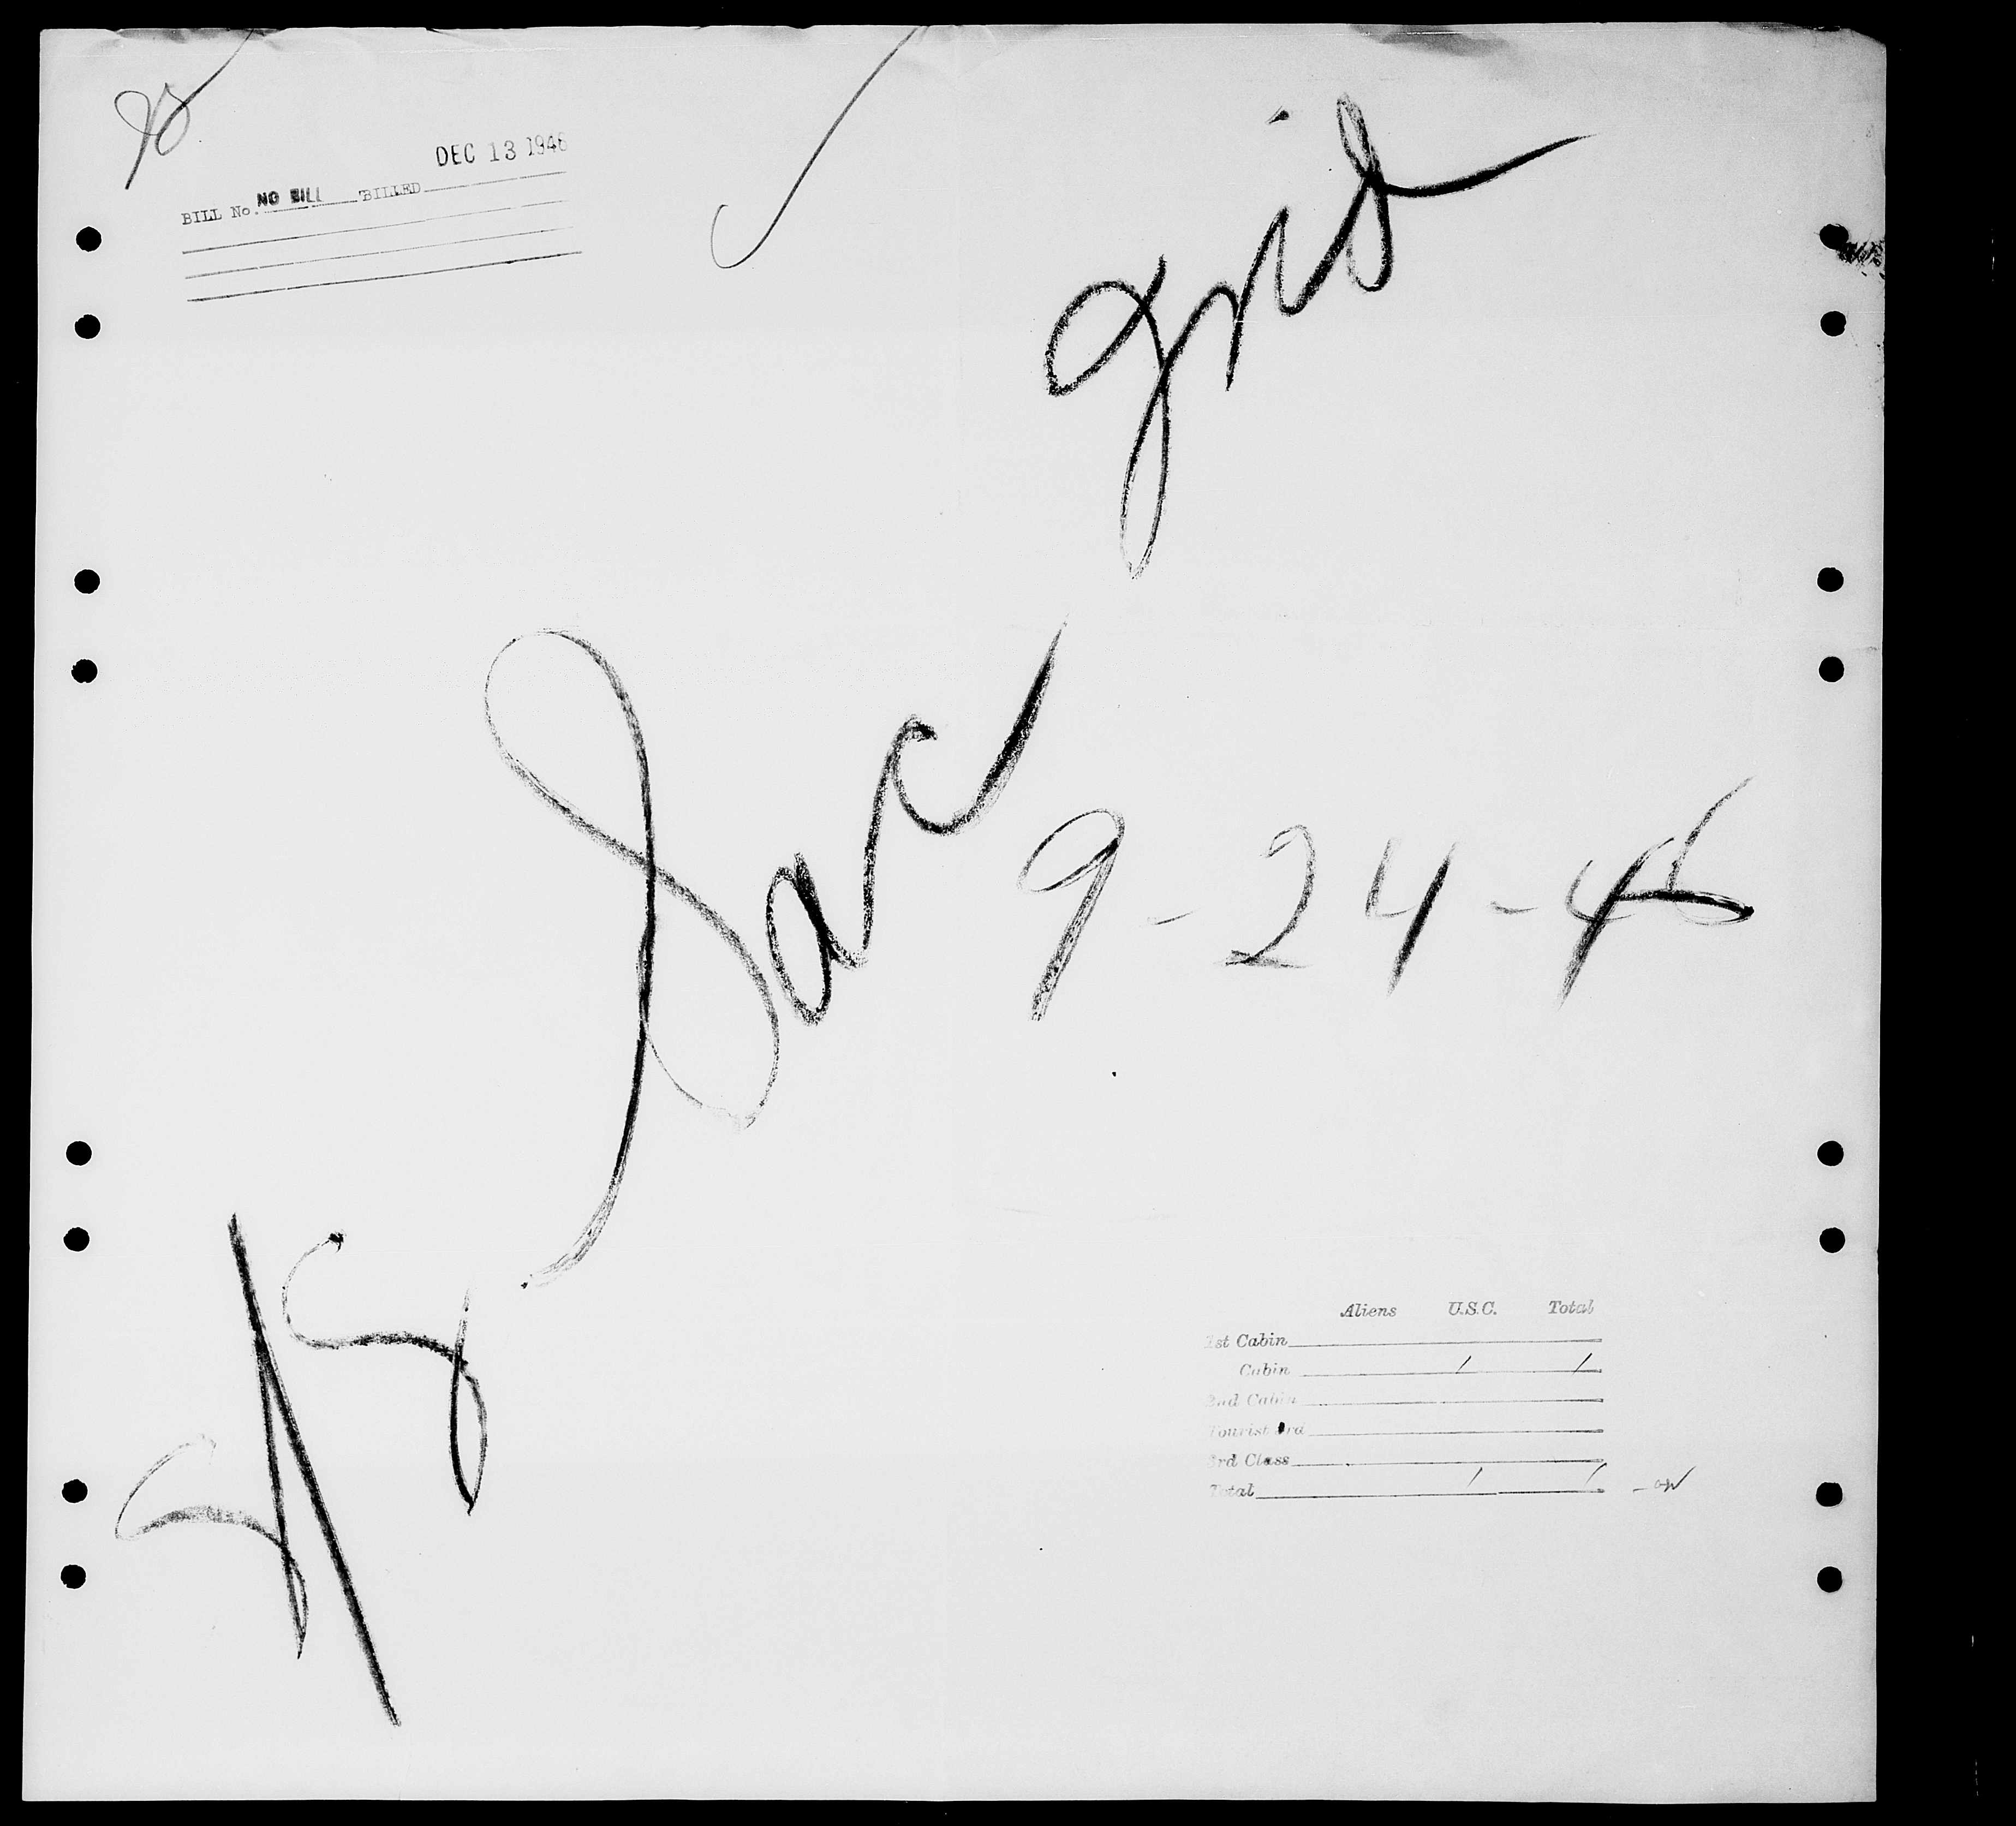 DEC 13 1946
BILL No. NO BILL BILLED
grid
Sac
9-24-46
Aliens U.S.C. Total
1st Cabin
Cabin / /
2nd Cabin
Tourist 3rd
3rd Class
Total / /